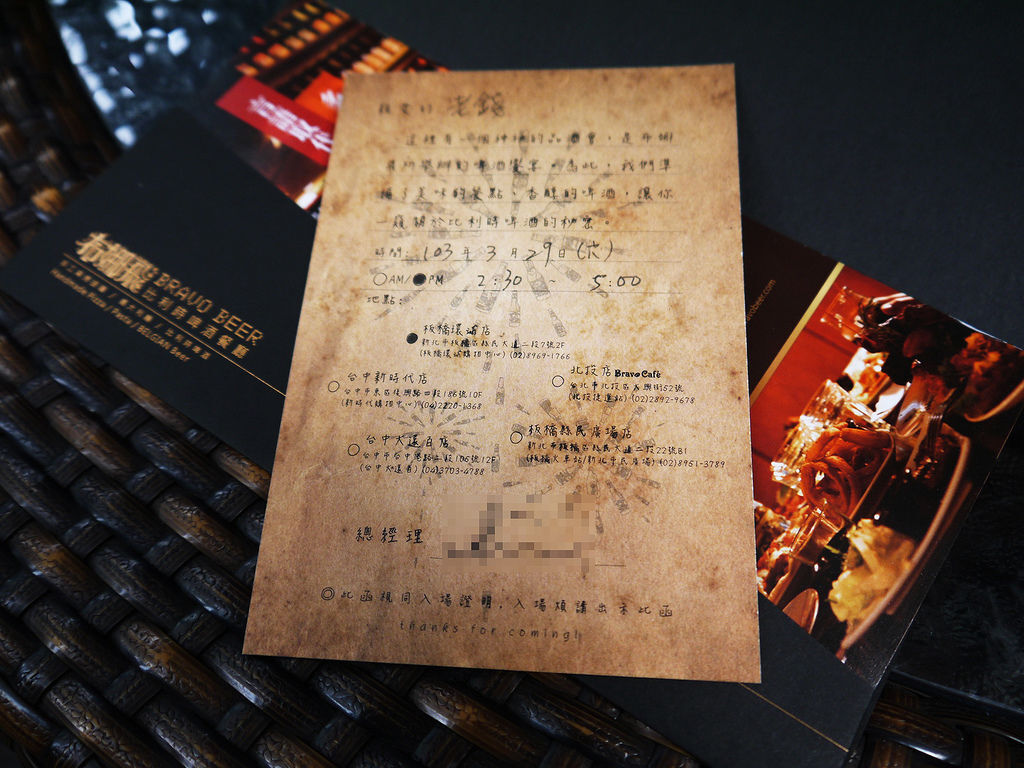 親愛的 老錢
這裡有一個神秘的品酒會，是布娜
飛所舉辦的啤酒饗宴。為此，我們準
備了美味的餐點，香醇的啤酒，讓你
一窺關於比利時啤酒的秘密。
時間：103年3月29日(六)
AM/ PM 2:30 ~ 5:00
地點：
板橋環球店
新北市板橋區縣民大道二段7號2F
(板橋環球購物中心) (02)8969-1766
台中新時代店
台中市東區復興路四段186號10F
(新時代購物中心) (04)2220-1368
北投店 Bravo Café
台北市北投區光明街52號
(北投捷運站) (02)2892-9678
台中大遠百店
(台中大遠百) (04)3703-4788
板橋縣民廣場店
新北市板橋區縣民大道二段22號B1
(板橋火車站/新北市民廣場) (02)8951-3789
總經理
◎此函視同入場證明，入場煩請出示此函
thanks for coming!
布娜飛 BRAVO BEER
比利時啤酒餐廳
Handmade Pizza / Pasta / BELGIAN Beer